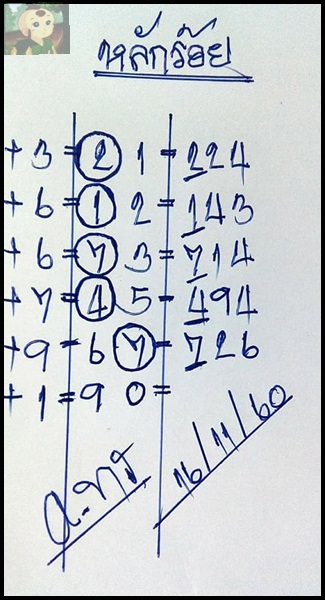 หลักร้อย
+ 3 = 2 1 = 224
+ 6 = 1 2 = 143
+ 6 = 7 3 = 714
+ 7 = 4 5 - 494
+ 9 - 6 7 - 726
+ 1 = 9 0 =
16/11/60